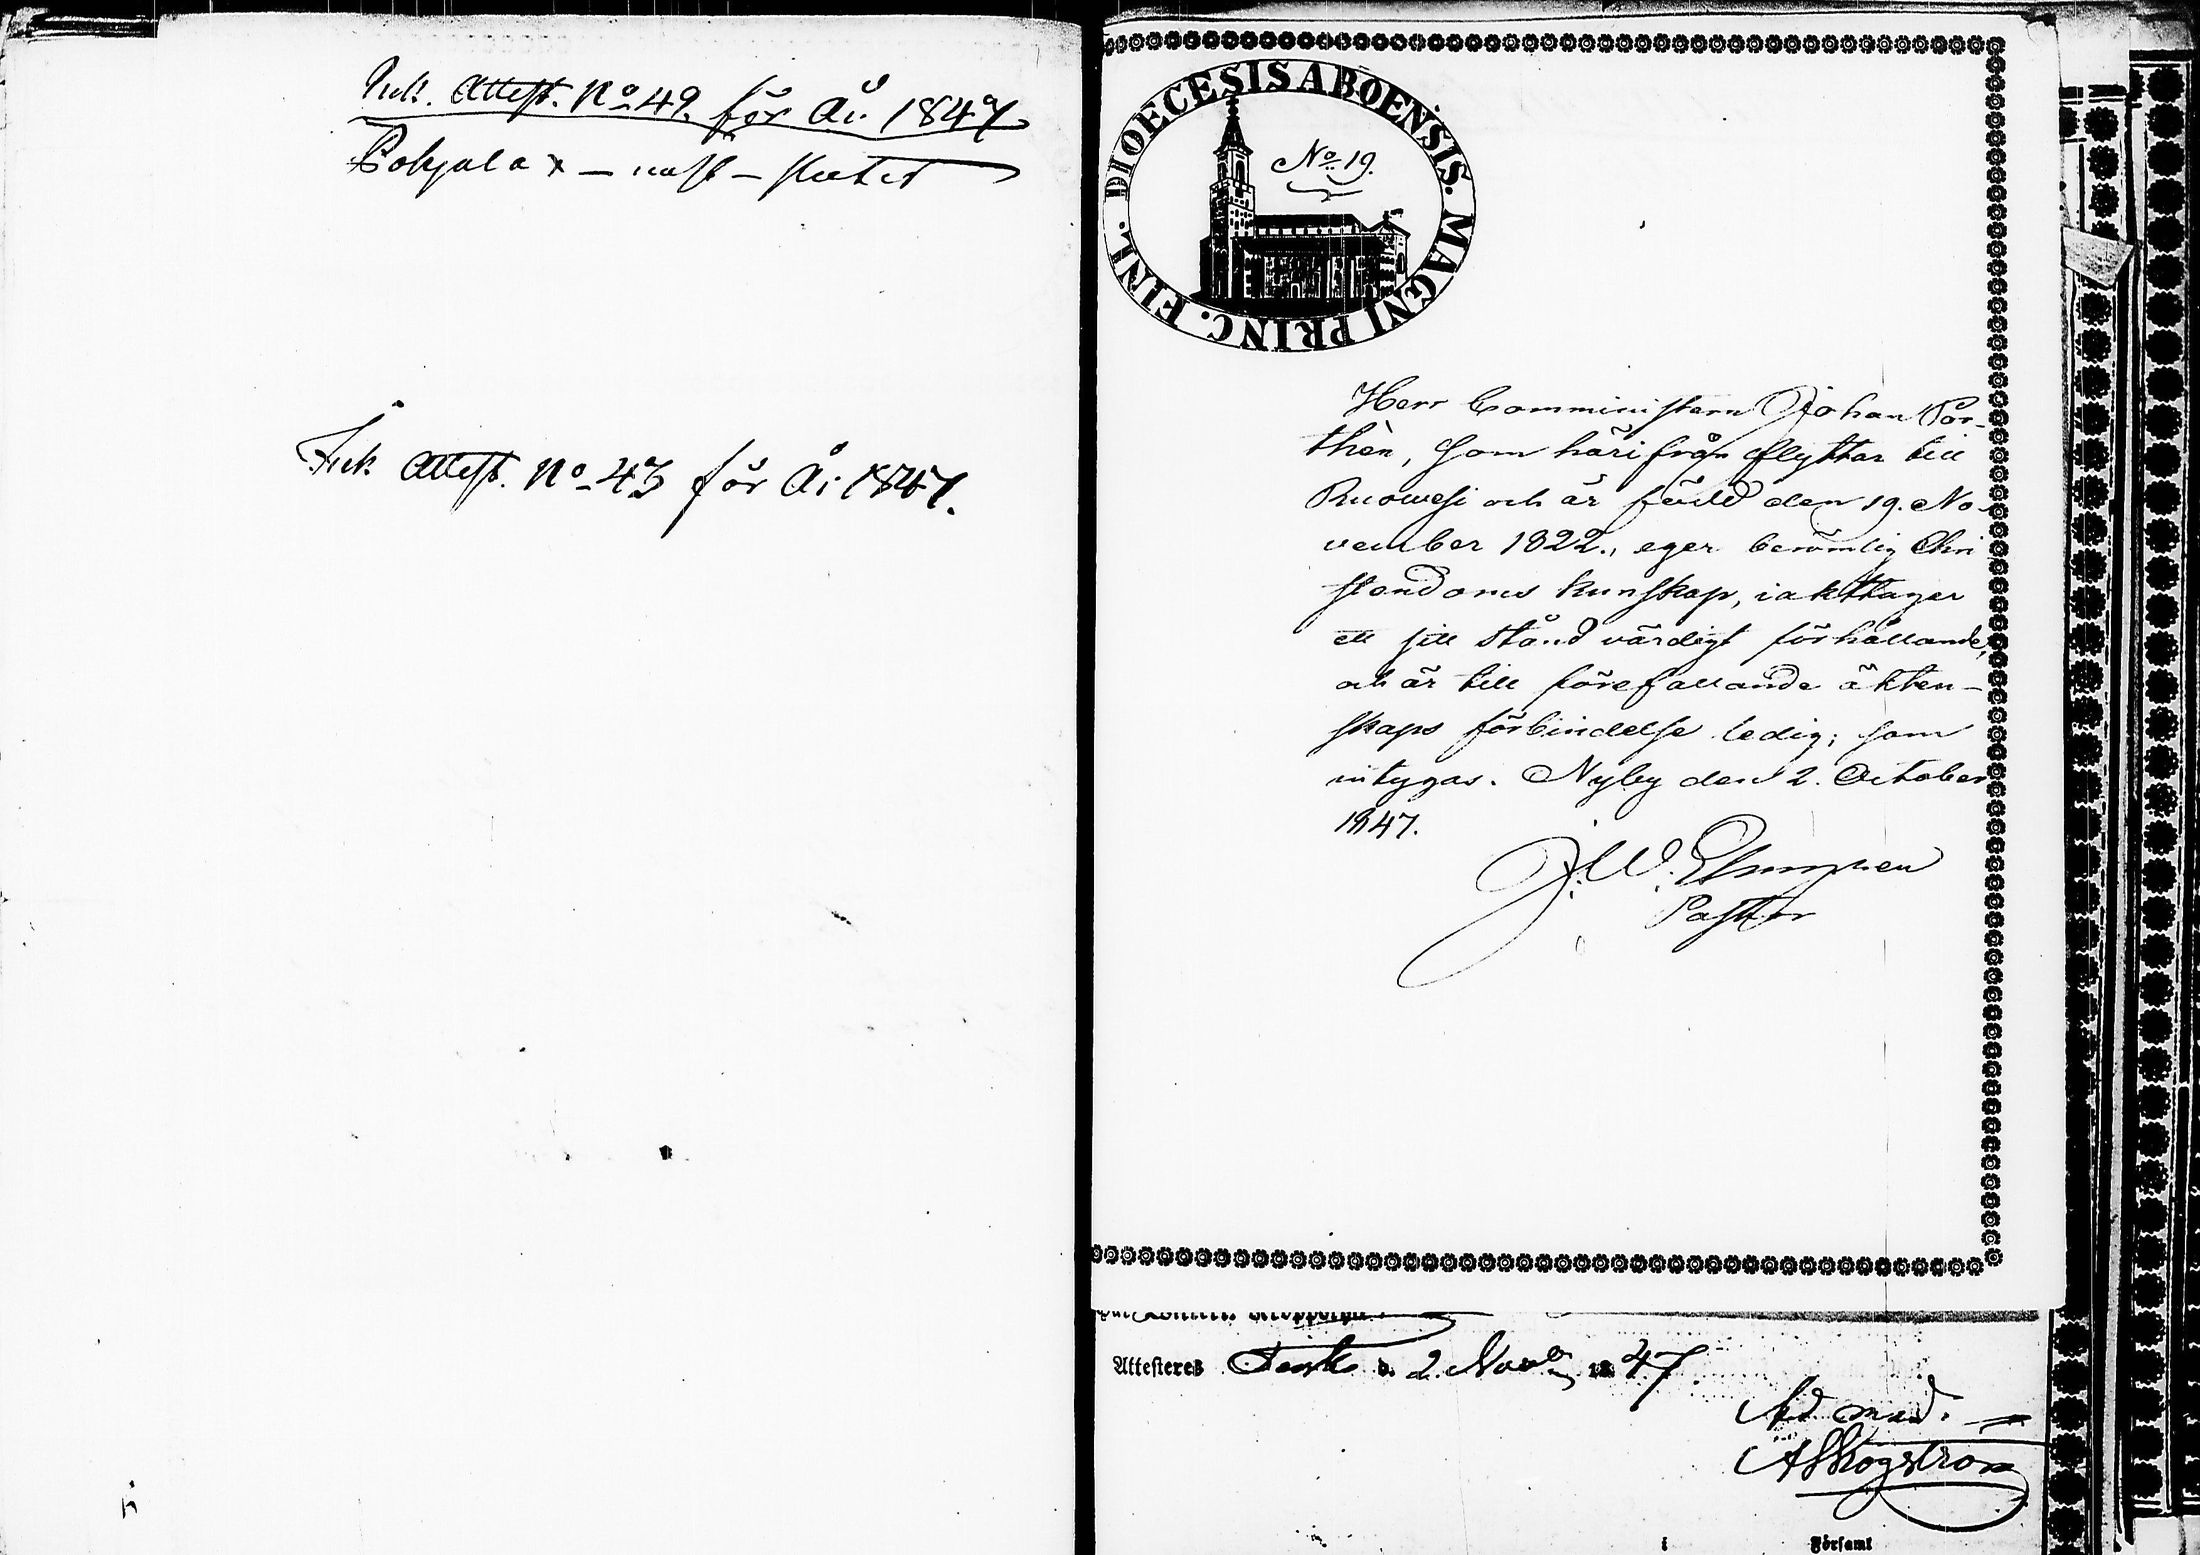 Ink. Attest. No 49. för År 1847
Pohjala
Ink Attest. No 43 för År 1847.
DIOECESIS ABOENSIS. MAGNI PRINC. FINL.
No 19.
Herr Comministern Johan Por-
thén, som härifrån flyttar till
Ruowesi och är född den 19. No-
vember 1822., eger berömlig Chri
stendoms kunskap, iakttager
ett sitt stånd värdigt förhållande,
och är till förefallande äkten-
skaps förbindelse ledig; som
intygas. Nyby den 2. October
1847.
J. W.
Pastor
Attesteres d. 2. Novb 1847
Ad mand.
A Skogström
i Församl